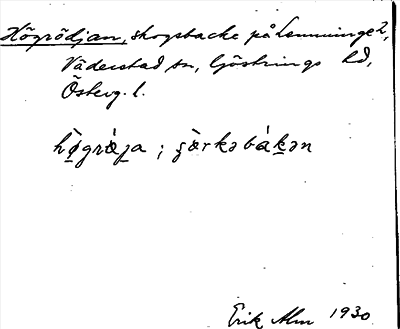 Högrödjan, skogsbacke på Lemminge 2,
Väderstad sn, Göstrings hd,
Österg. l.
hø̀græ̀ɟa ; ʂæ̀rkəbákən
Erik Alm 1930